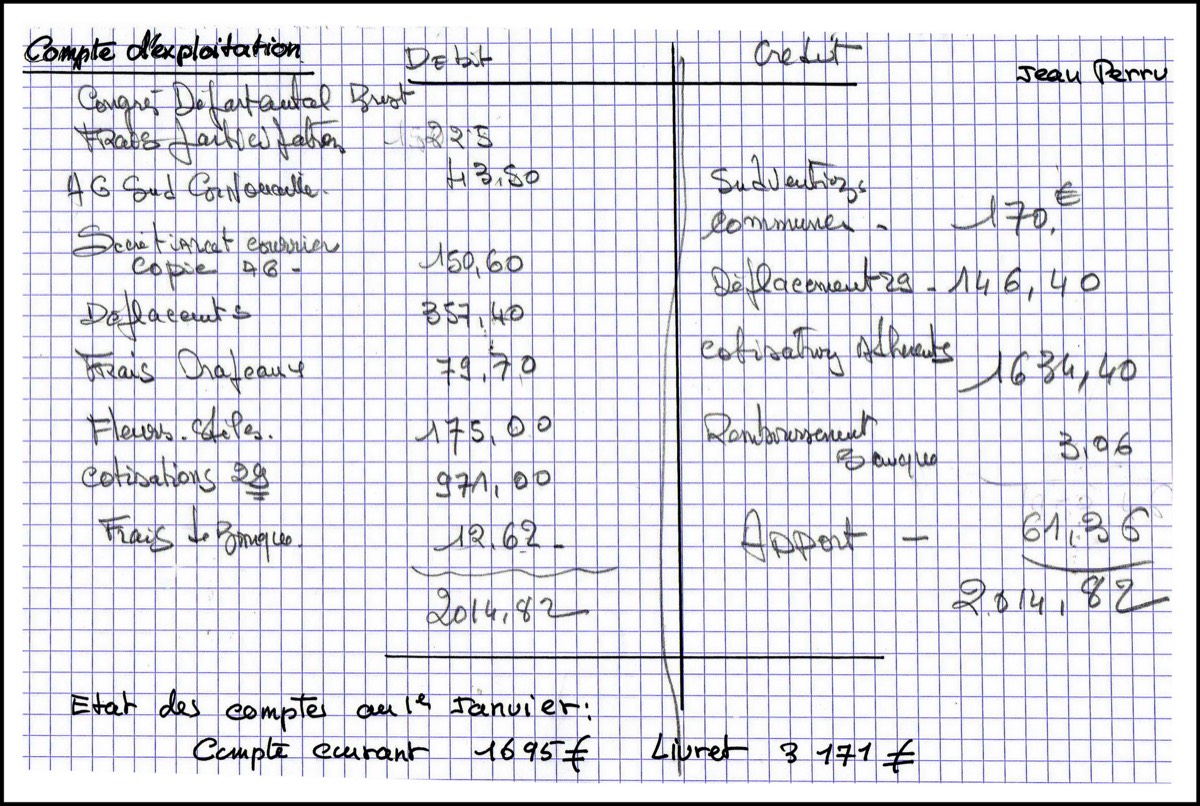 Compte d'exploitation
Débit
Crédit
Jean Perru
Congrès Départantal Brest
Frais participation 225
AG Sud Cornouaille. 43,50
Secrétariat courrier
copie AG - 150,60
Déplacemts 357,40
Frais Drapeaux 79,70
Fleurs. 175,00
Cotisations 29 971,00
Frais de Banque. 12,62
2014,82
Subventions
communes - 170,€
Déplacement 29 - 146,40
Cotisations Adhérents 1634,40
Remboursement
Banque 3,06
Apport - 61,36
2.014,82
Etat des comptes au 1er Janvier:
Compte courant 1695 € Livret 3 171 €